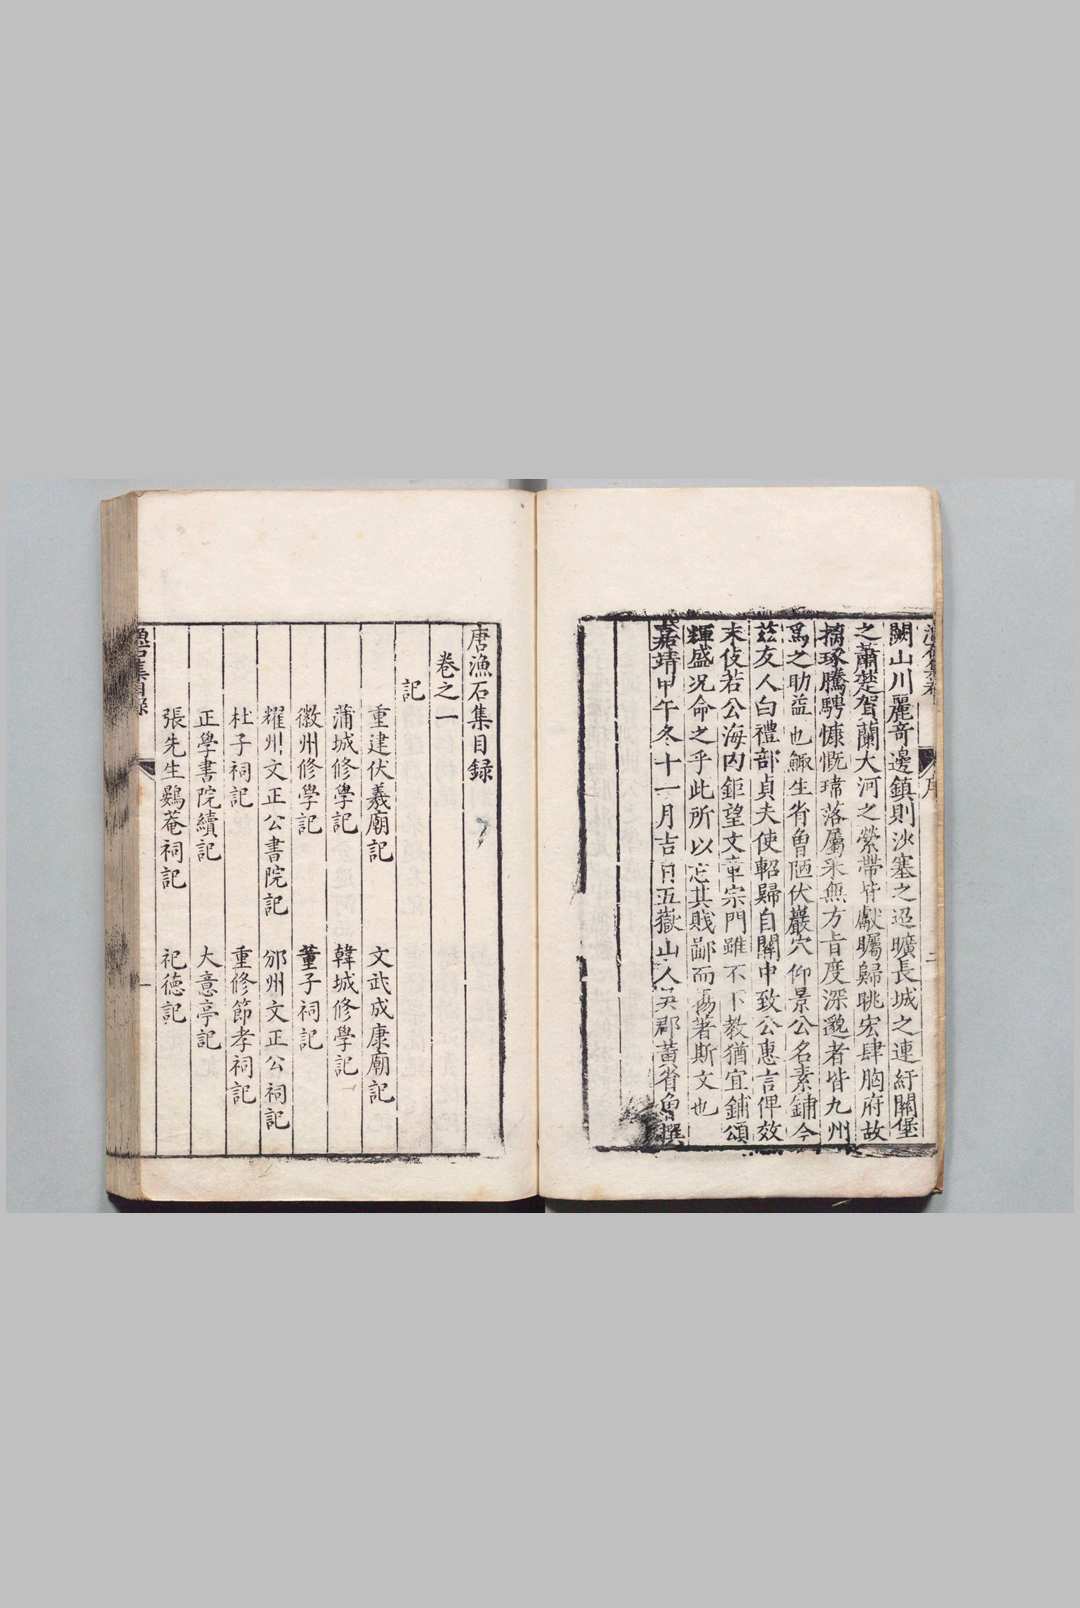 闕山川麗奇邊鎮則沙塞之迢曠長城之連紆關堡
之蕭楚賀蘭大河之縈帶皆獻矚歸眺宏肆胸府故
摛琢騰騁慷慨瑰落屬采無方旨度深邈者皆九州
爲之助益也鯫生省魯陋伏巖穴仰景公名素鋪今
茲友人白禮部貞夫使軺歸自關中致公惠言俾效
末伎若公海内鉅望文章宗門雖不下教猶宜鋪頌
輝盛况命之乎此所以忘其賤鄙而昜著斯文也
嘉靖甲午冬十一月吉日五嶽山人吳郡黃省魯撰
序
二
唐漁石集目録
卷之一
記
重建伏羲廟記　文武成康廟記
蒲城修學記　韓城修學記
徽州修學記　董子祠記
耀州文正公書院記　邠州文正公祠記
杜子祠記　重修節孝祠記
正學書院續記　大意亭記
張先生鷄菴祠記　祀德記
漁石集目録
一